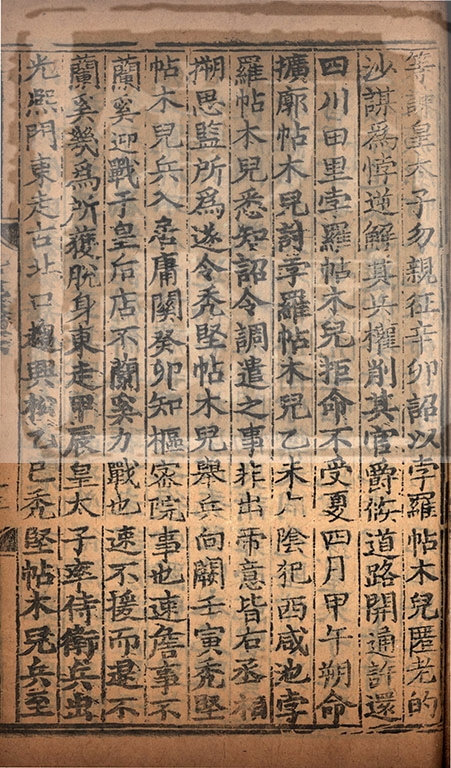 等諫皇太子勿親征辛卯詔以孛羅帖木兒匿老的
沙謀爲悖逆解其兵權削其官爵候道路開通許還
四川田里孛羅帖木兒拒命不受夏四月甲午朔命
擴廓帖木兒討孛羅帖木兒乙未太陰犯西咸池孛
羅帖木兒悉知詔令調遣之事非出帝意皆右丞相
搠思監所爲遂令秃堅帖木兒舉兵向闕壬寅秃堅
帖木兒兵入居庸關癸卯知樞密院事也速詹事不
蘭奚迎戰于皇后店不蘭奚力戰也速不援而退不
蘭奚幾爲所獲脫身東走甲辰皇太子率侍衛兵出
光熙門東走古北口趨興松乙巳秃堅帖木兒兵至